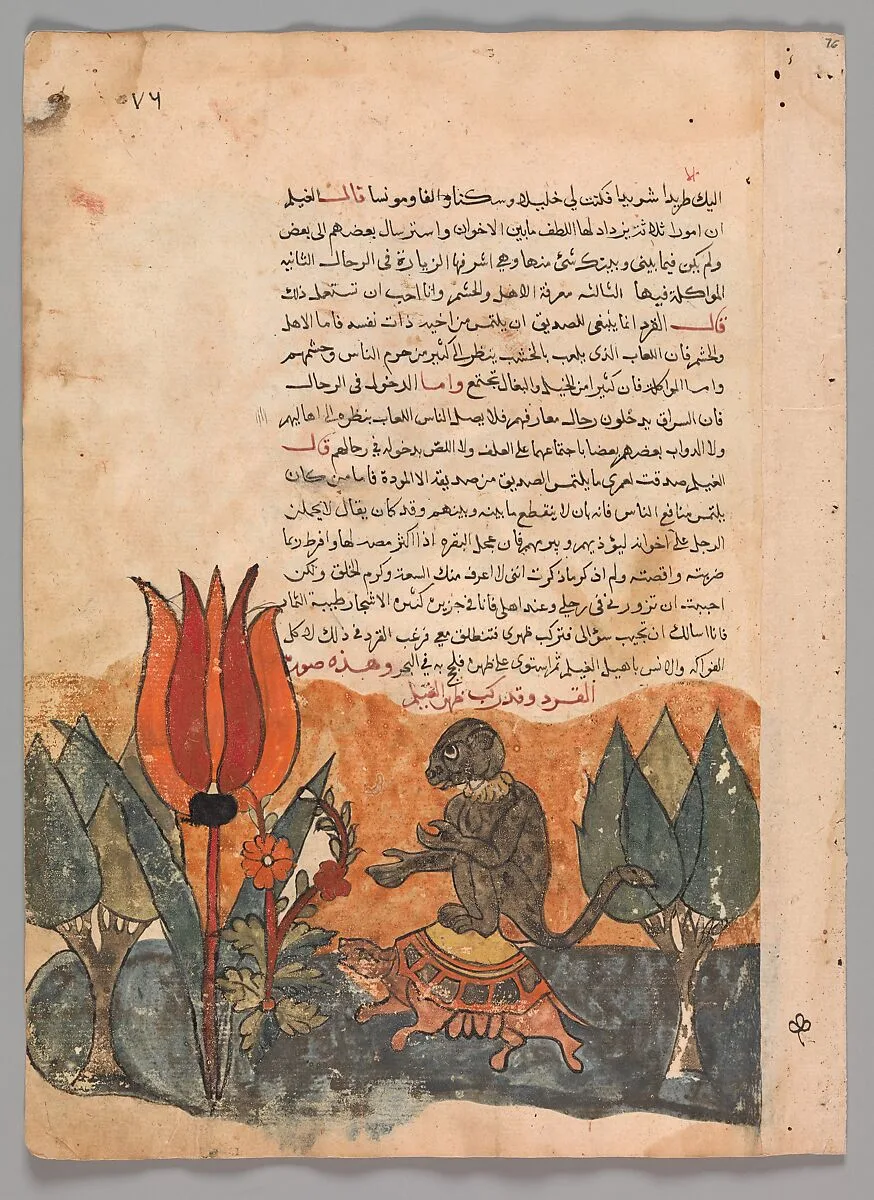 76
٧٦
اليك طريدا شريدا فكنت لي خليلا وسكنا والفا ومونسا قال الغيلم
ان امورا ثلاثة يزداد لها اللطف ما بين الاخوان واسترسال بعضهم الى بعض
ولم يكن فيما بيني وبينك شئ منها وهي اشرفها الزيارة في الرحال الثانيه
المواكلة فيها الثالثه معرفة الاهل والحشم وانا احب ان تستعمل ذلك
قال القرد انما ينبغي للصديق ان يلتمس من اخيه ذات نفسه فاما الاهل
والحشم فان اللعاب الذي يلعب بالخشب ينظر الى كثير من حرم الناس وحشمهم
واما المواكلة فان كثيرا من الخيل والبغال تجتمع واما الدخول في الرحال
فان السراق يدخلون رحال معارفهم فلا يصل الناس اللعاب بنظره الى اهاليهم
ولا الدواب بعضهم بعضا باجتماعهما على العلف ولا اللص بدخوله في رحالهم قال
الغيلم صدقت لعمري ما يلتمس الصديق من صديقه الا المودة فاما من كان
يلتمس منافع الناس فانه ان لا ينقطع ما بينه وبينهم وقد كان يقال لا يحملن
الرجل على اخوانه ليؤذيهم فان عجل البقره اذا اكثر مصه لها وافرط ربما
ضربته واقصته ولم اذكر ما ذكرت انني لا اعرف منك السعة وكرم الخلق ولكن
احببت ان تزورني في رحلي وعند اهلي فانا في جزيرة كثيره الاشجار طيبة الثمار
فانا اسالك ان تجيب سؤالي فتركب ظهري فتنطلق معي فرغب القرد في ذلك لاكل
الفواكه والانس باهل الغيلم ثم استوى على ظهره فلجج به في البحر وهذه صورة
القرد وقد ركب ظهر الغيلم